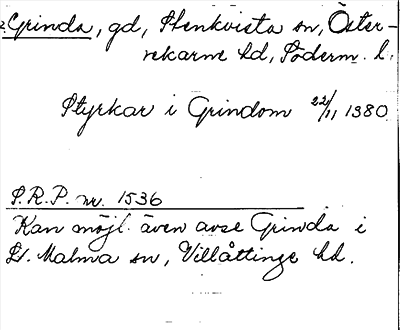 Grinda, gd, Stenkvista sn, Öster-
rekarne hd, Söderm. l.
Styrkar i Grindom 22/11 1380
S.R.P. nr. 1536
Kan möjl. även avse Grinda i
L. Malma sn, Villåttinge hd.